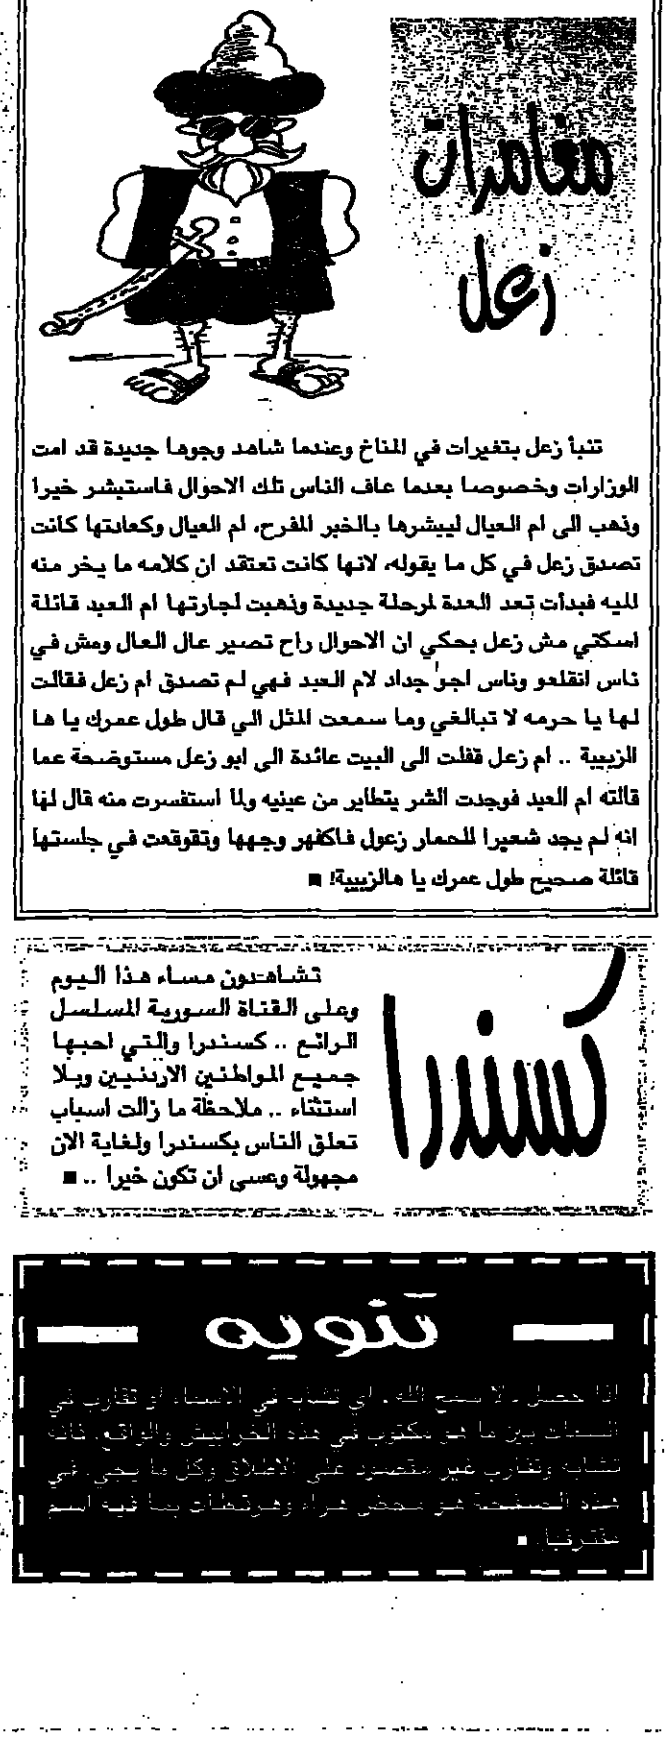 مغامرات
زعل
تنبأ زعل بتغيرات في المناخ وعندما شاهد وجوها جديدة قد امت
الوزارات وخصوصا بعدما عاف الناس تلك الاحوال فاستبشر خيرا
وذهب الى ام العيال ليبشرها بالخبر المفرح، ام العيال وكعادتها كانت
تصدق زعل في كل ما يقوله، لانها كانت تعتقد ان كلامه ما يخر منه
المیه فبدأت تعد العدة لمرحلة جديدة وذهبت لجارتها ام العبد قائلة
اسكتي مش زعل بحكي ان الاحوال راح تصير عال العال ومش في
ناس انقلعو وناس اجو جداد لام العبد فهي لم تصدق ام زعل فقالت
لها يا حرمه لا تبالغي وما سمعت المثل الي قال طول عمرك يا ها
الزبيبة .. ام زعل قفلت الى البيت عائدة الى ابو زعل مستوضحة عما
قالته ام العبد فوجدت الشر يتطاير من عينيه ولما استفسرت منه قال لها
انه لم يجد شعيرا للحمار زعول فاكفهر وجهها وتقوقعت في جلستها
قائلة صحيح طول عمرك يا هالزبيبة! ■
كسندرا
تشاهدون مساء هذا اليوم
وعلى القناة السورية المسلسل
الرائع .. كسندرا والتي احبها
جميع المواطنين الاردنيين وبلا
استثناء .. ملاحظة ما زالت اسباب
تعلق الناس بكسندرا ولغاية الان
مجهولة وعسى ان تكون خيرا .. ■
تنويه
اذا حصل . لا سمح الله . اي تشابه في الاسماء او تقارب في
السمات بين ما هو مكتوب في هذه الخرابيش والواقع. فانه
تشابه وتقارب غير مقصود على الاطلاق وكل ما يجيء في
هذه الصفحة هو محض هراء وهرتطات بما فيه اسم
مقترفها. ■